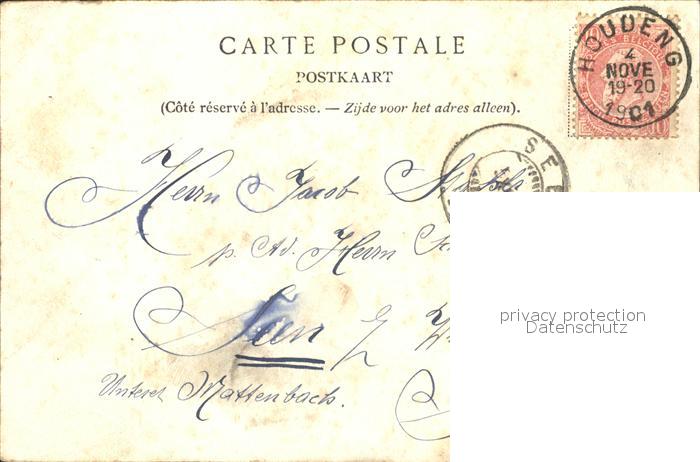 CARTE POSTALE
POSTKAART
(Côté réservé à l'adresse. — Zijde voor het adres alleen).
HOUDENG
4
NOVE
19-20
1901
10
SE
Herrn Jacob
p. Ad. Herrn
Unterer Mattenbach.
privacy protection
Datenschutz